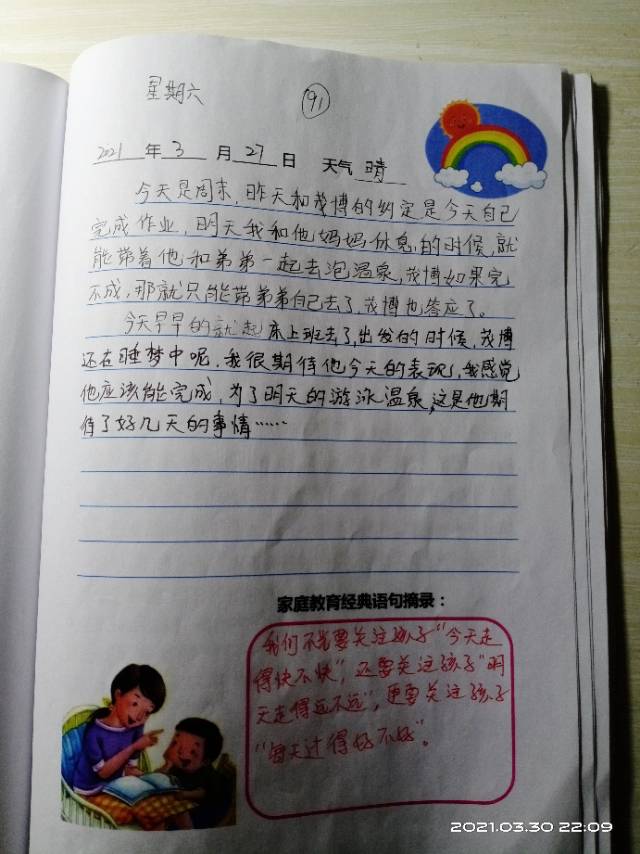 星期六
91
2021 年 3 月 27 日 天气 晴
今天是周末，昨天和茂博的约定是今天自己
完成作业，明天我和他妈妈休息的时候，就
能带着他和弟弟一起去泡温泉，茂博如果完
不成，那就只能带弟弟自己去了，茂博也答应了。
今天早早的就起床上班去了，出发的时候，茂博
还在睡梦中呢，我很期待他今天的表现，我感觉
他应该能完成，为了明天的游泳温泉，这是他期
待了好几天的事情……
家庭教育经典语句摘录：
我们不光要关注孩子“今天走
得快不快”，还要关注孩子“明
天走得远不远”，更要关注孩子
“每天过得好不好”。
2021.03.30 22:09